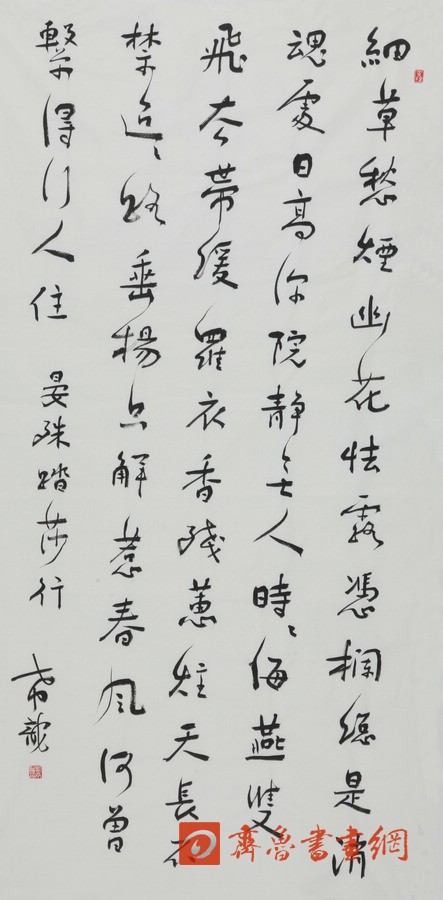 細草愁煙幽花怯露憑欄總是消
魂處日高深院靜無人時々海燕雙
飛去帶緩羅衣香殘蕙炷天長不
禁迢々路垂楊只解惹春風何曾
繫得行人住 晏殊踏莎行
齊魯書畫網